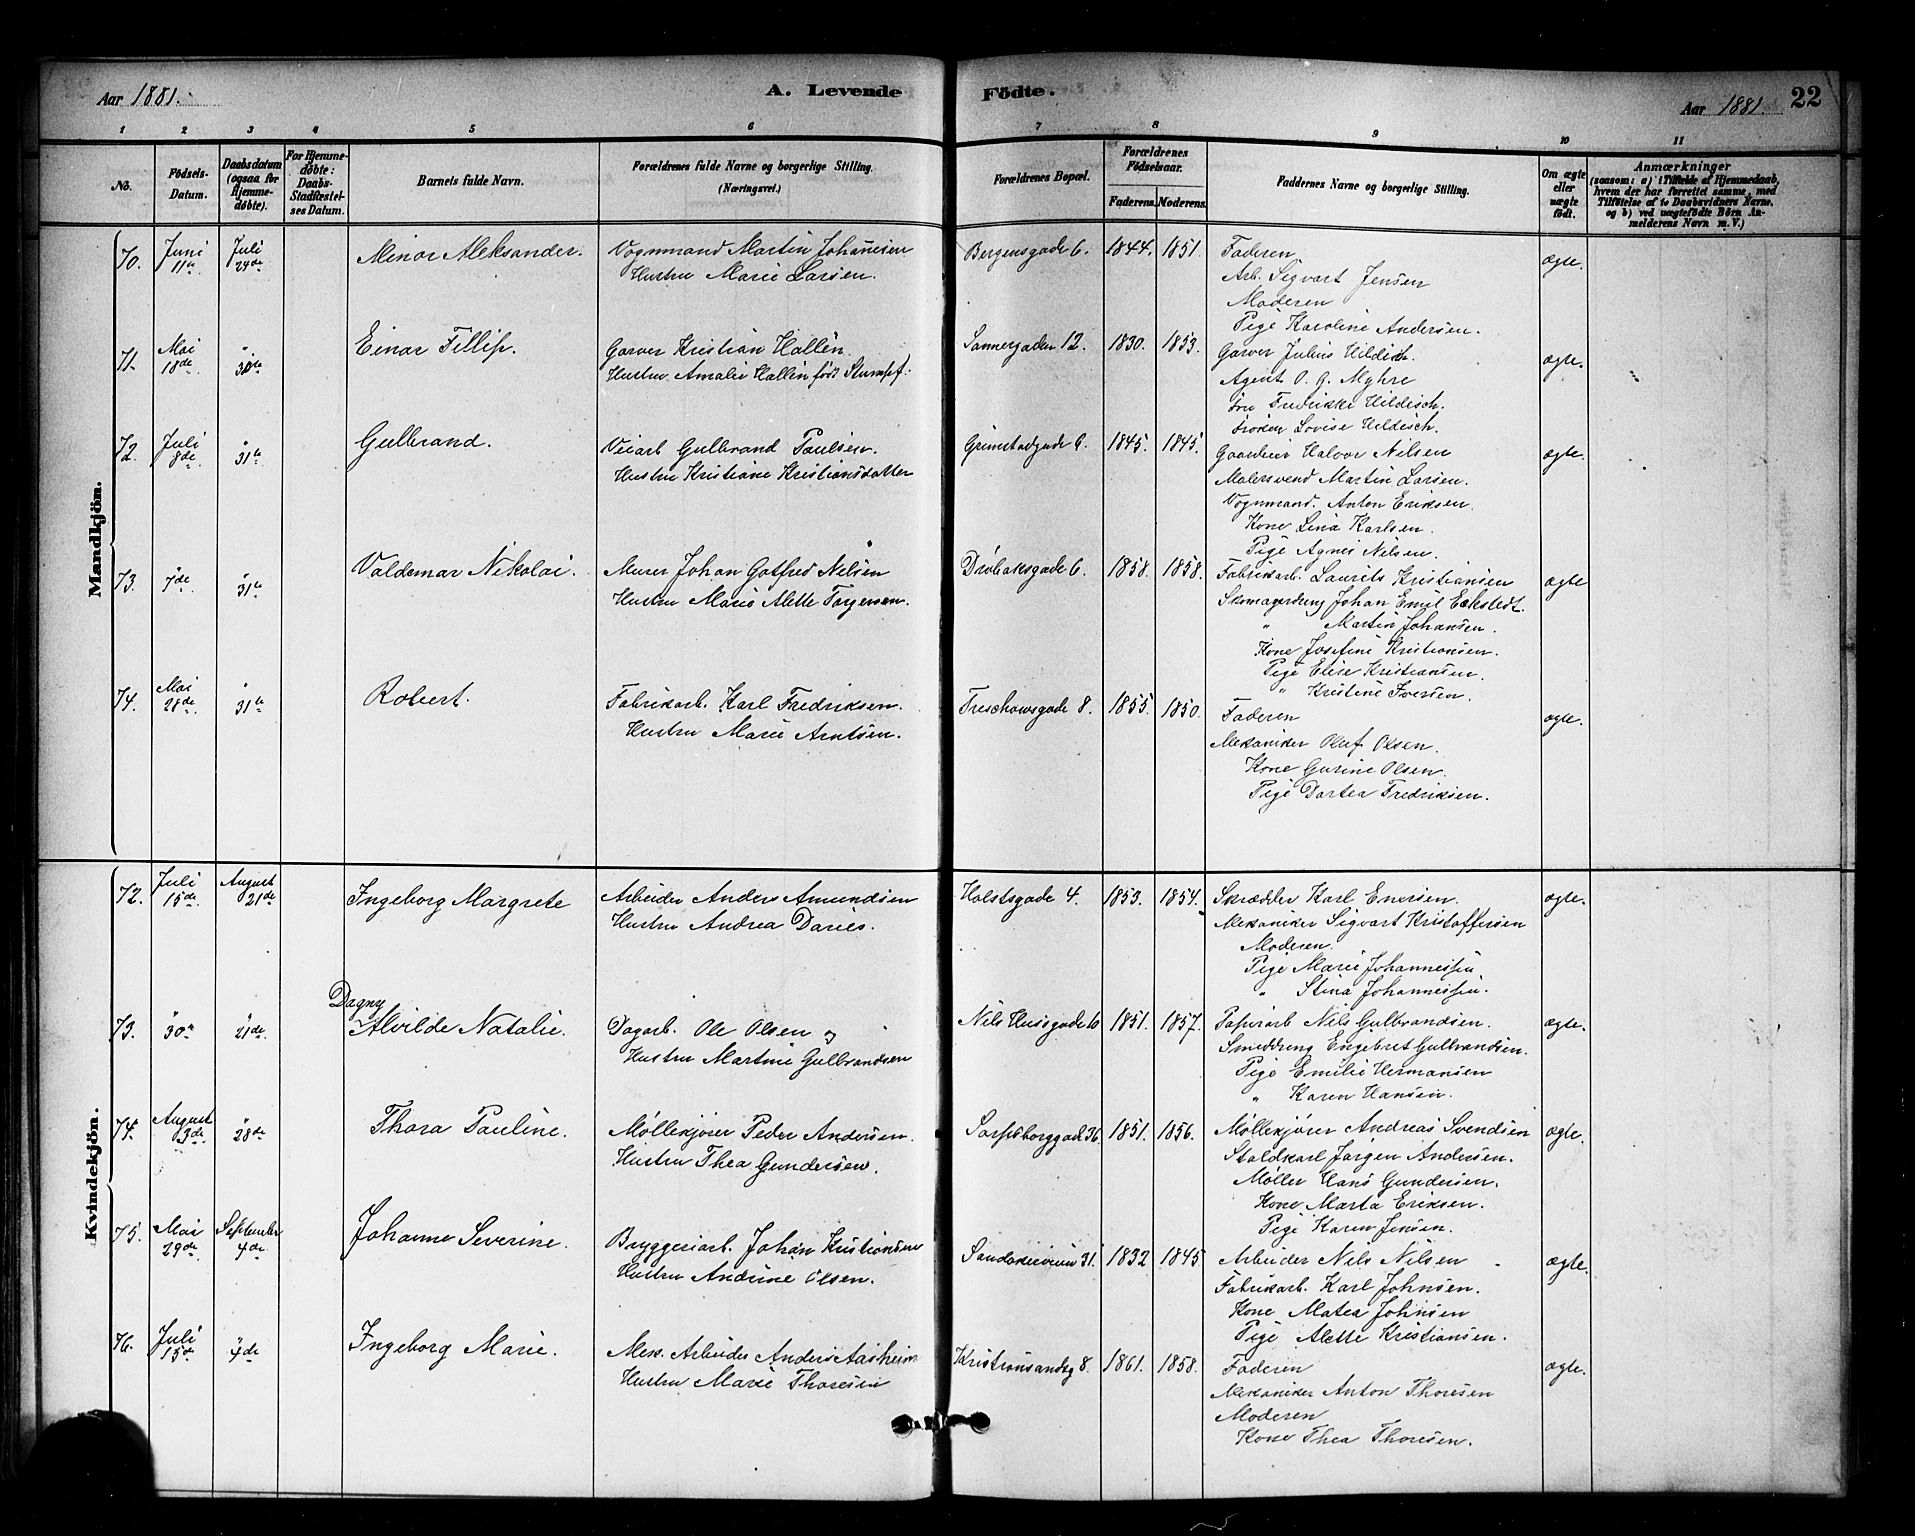 Aar 1881.
A. Levende Födte.
Aar 1881.
22
1 2 3 4 5 6 7 8 9 10 11
No.
Födsels-Datum.
Daabsdatum (ogsaa for Hjemmedöbte).
For Hjemmedöbte: Daabs-Stadfæstelses Datum.
Barnets fulde Navn.
Forældrenes fulde Navne og borgerlige Stilling. (Næringsvei.)
Forældrenes Bopæl.
Forældrenes Födselsaar.
Faderens. Moderens.
Faddernes Navne og borgerlige Stilling.
Om ægte eller uægte födt.
Anmærkninger
(saasom: a) i Tilfælde af Hjemmedaab, hvem der har forrettet samme, med Tilföielse af to Daabsvidners Navne, og b) ved uægtefödte Börn Anmelderens Navn m.V.)
Mandkjön.
70. Juni 11te Juli 24de Minar Aleksander. Vognmand Martin Johansen Bergensgade 6. 1844. 1851. Faderen ægte.
Hustru Marie Larsen. Arb. Sigvart Jensen
Moderen
Pige Karoline Andersen.
71. Mai 18de " 30te Einar Fillip. Garver Kristian Hallén. Sannergaden 12. 1830. 1853. Garver Julius Hildisch. ægte.
Hustru Amalie Hallén født Stumpf. Agent O. G. Myhre
Fru Fredrikke Hildisch.
Frøken Lovise Hildisch.
72. Juli 8de " 31te Gulbrand. Veiarb Gulbrand Paulsen. Grimstadgade 6. 1845. 1845. Gaardeier Halvor Nilsen ægte.
Hustru Kristiane Kristiansdatter Malersvend Martin Larsen.
Vognmand. Anton Eriksen.
Kone Lina Karlsen.
Pige Agnes Nilsen.
73. 7de " 31te Valdemar Nikolai. Murer Johan Gotfred Nilsen Drøbaksgade 6. 1858. 1858. Fabrikarb. Laurits Kristiansen ægte
Hustru Marie Alette Torgersen. Skomagerdreng Johan Emil Eckstedt.
" Martin Johansen.
Kone Josefine Kristiansen.
Pige Elise Kristiansen.
" Kristine Iversen.
74. Mai 28de " 31te Robert. Fabrikarb. Karl Fredriksen. Treschowsgade 8. 1855. 1850. Faderen ægte.
Hustru Marie Arntsen. Mekaniker Oluf Olsen.
Kone Gurine Olsen.
Pige Dortea Fredriksen.
Kvindekjön.
72. Juli 15de August 21de Ingeborg Margrete Arbeider Anders Amundsen Holstsgade 4. 1853. 1854. Skrædder Karl Enersen. ægte.
Hustru Andrea Daries. Mekaniker Sigvart Kristoffersen
Moderen.
Pige Marie Johannessen.
" Stina Johannessen.
73. " 30te " 21de Dagny Alvilde Natalie. Dagarb. Ole Olsen og Nils Hussgade 10 1851. 1857. Papirarb Nils Gulbrandsen. ægte.
Hustru Martine Gulbrandsen Smeddreng Engebret Gulbrandsen.
Pige Emilie Hermansen
" Karen Hansen.
74. August 3de " 28de Thora Pauline. Møllekjører Peder Andersen. Sarpsborggad 36. 1851. 1856. Møllekjører Andreas Svendsen ægte.
Hustru Thea Gundersen. Staldkarl Jørgen Andersen.
Møller Hans Gundersen.
Kone Marta Eriksen.
Pige Karen Jensen.
75. Mai 29de September 4de Johanne Severine. Bryggeriarb. Johan Kristiansen Sandakerveien 31. 1832 1845 Arbeider Nils Nilsen ægte.
Hustru Andrine Olsen. Fabrikarb. Karl Johnsen.
Kone Matea Johnsen
Pige Alette Kristiansen.
76. Juli 15de " 4de Ingeborg Marie. Mek. Arbeider Anders Aasheim Kristiansandsg 8. 1861. 1858. Faderen ægte.
Hustru Marie Thoresen Mekaniker Anton Thoresen
Moderen
Kone Thea Thoresen.